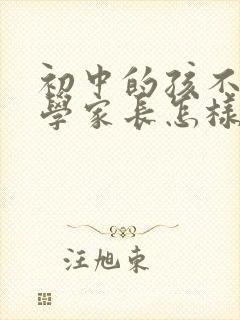 初中的孩不
學家長怎樣
汪旭東